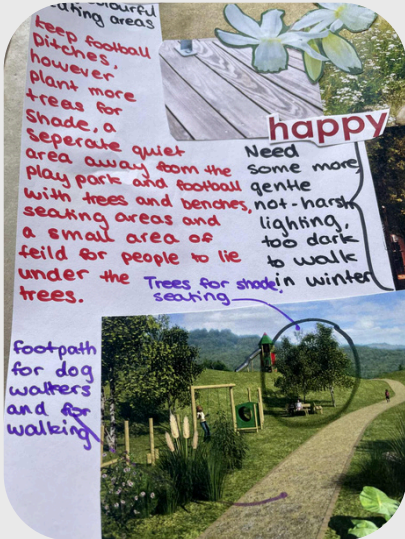 colourful
eating areas
keep football
pitches,
however
plant more
trees for
shade, a
seperate quiet
area away from the
play park and football
with trees and benches,
seating areas and
a small area of
feild for people to lie
under the
trees.
happy
Need
some more
gentle
not-harsh
lighting,
too dark
to walk
in winter
Trees for shade!
seating
footpath
for dog
walkers
and for
walking